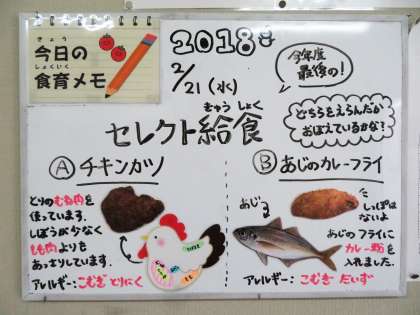 きょう
今日の
しょくいく
食育メモ
2018年
2/21(水)
今年度
最後の!
きゅう しょく
セレクト給食
どちらをえらんだか
おぼえているかな?
Ⓐ チキンカツ
とりのむね肉を
使っています。
しぼうが少なく
もも肉よりも
あっさりしています。
アレルギー:こむぎ とりにく
Ⓑ あじのカレーフライ
あじ
しっぽは
ないよ
あじのフライに
カレー粉を
入れました。
アレルギー:こむぎ だいず